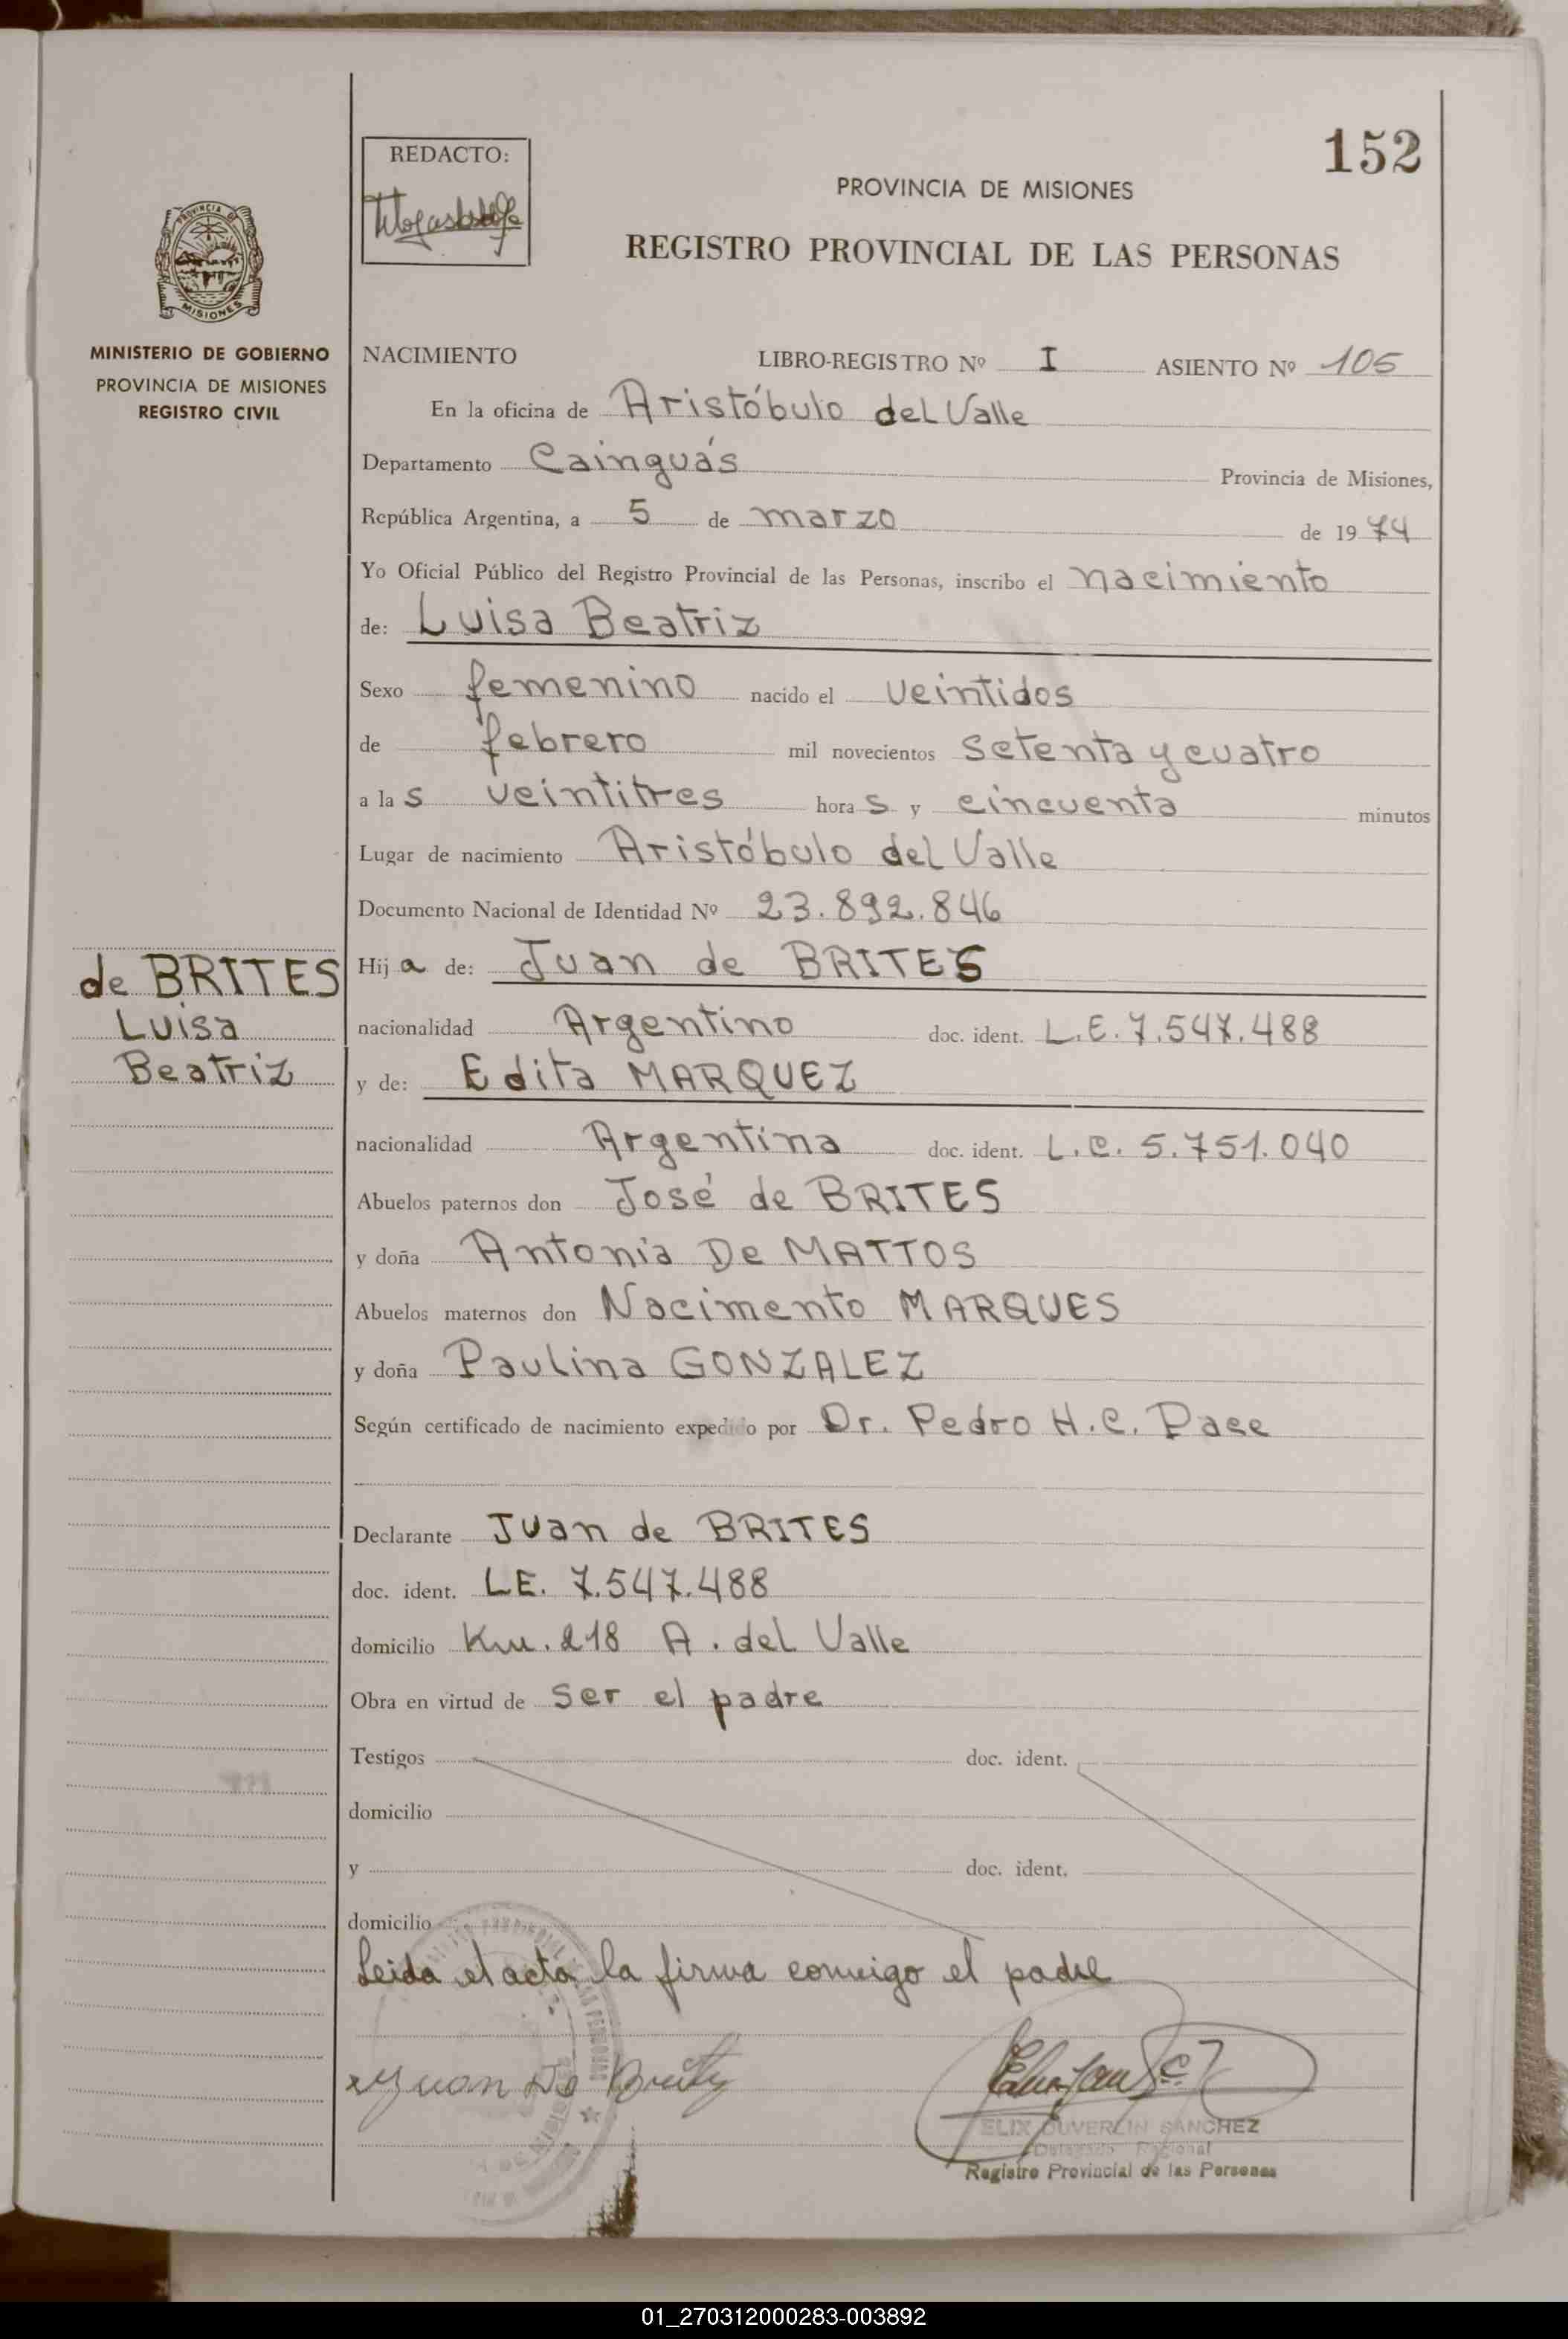 152
REDACTO:
PROVINCIA DE MISIONES
REGISTRO PROVINCIAL DE LAS PERSONAS
PROVINCIA DE
MISIONES
MINISTERIO DE GOBIERNO
PROVINCIA DE MISIONES
REGISTRO CIVIL
NACIMIENTO LIBRO-REGISTRO Nº I ASIENTO Nº 105
En la oficina de Aristóbulo del Valle
Departamento Cainguás Provincia de Misiones,
República Argentina, a 5 de marzo de 1974
Yo Oficial Público del Registro Provincial de las Personas, inscribo el nacimiento
de: Luisa Beatriz
Sexo femenino nacido el veintidos
de febrero mil novecientos setenta y cuatro
a las veintitres horas y cincuenta minutos
Lugar de nacimiento Aristóbulo del Valle
Documento Nacional de Identidad Nº 23.892.846
de BRITES
Luisa
Beatriz
Hija de: Juan de BRITES
nacionalidad Argentino doc. ident. L.E. 7.547.488
y de: Edita MARQUEZ
nacionalidad Argentina doc. ident. L.C. 5.751.040
Abuelos paternos don José de BRITES
y doña Antonia De MATTOS
Abuelos maternos don Nacimento MARQUES
y doña Paulina GONZALEZ
Según certificado de nacimiento expedido por Dr. Pedro H.C. Pase
Declarante Juan de BRITES
doc. ident. L.E. 7.547.488
domicilio Km. 218 A. del Valle
Obra en virtud de ser el padre
Testigos doc. ident.
domicilio
y doc. ident.
domicilio
Leida el acta la firma conmigo el padre
Juan De Brites
ELIX DUVERLIN SANCHEZ
Delegado Regional
Registro Provincial de las Personas
01_270312000283-003892